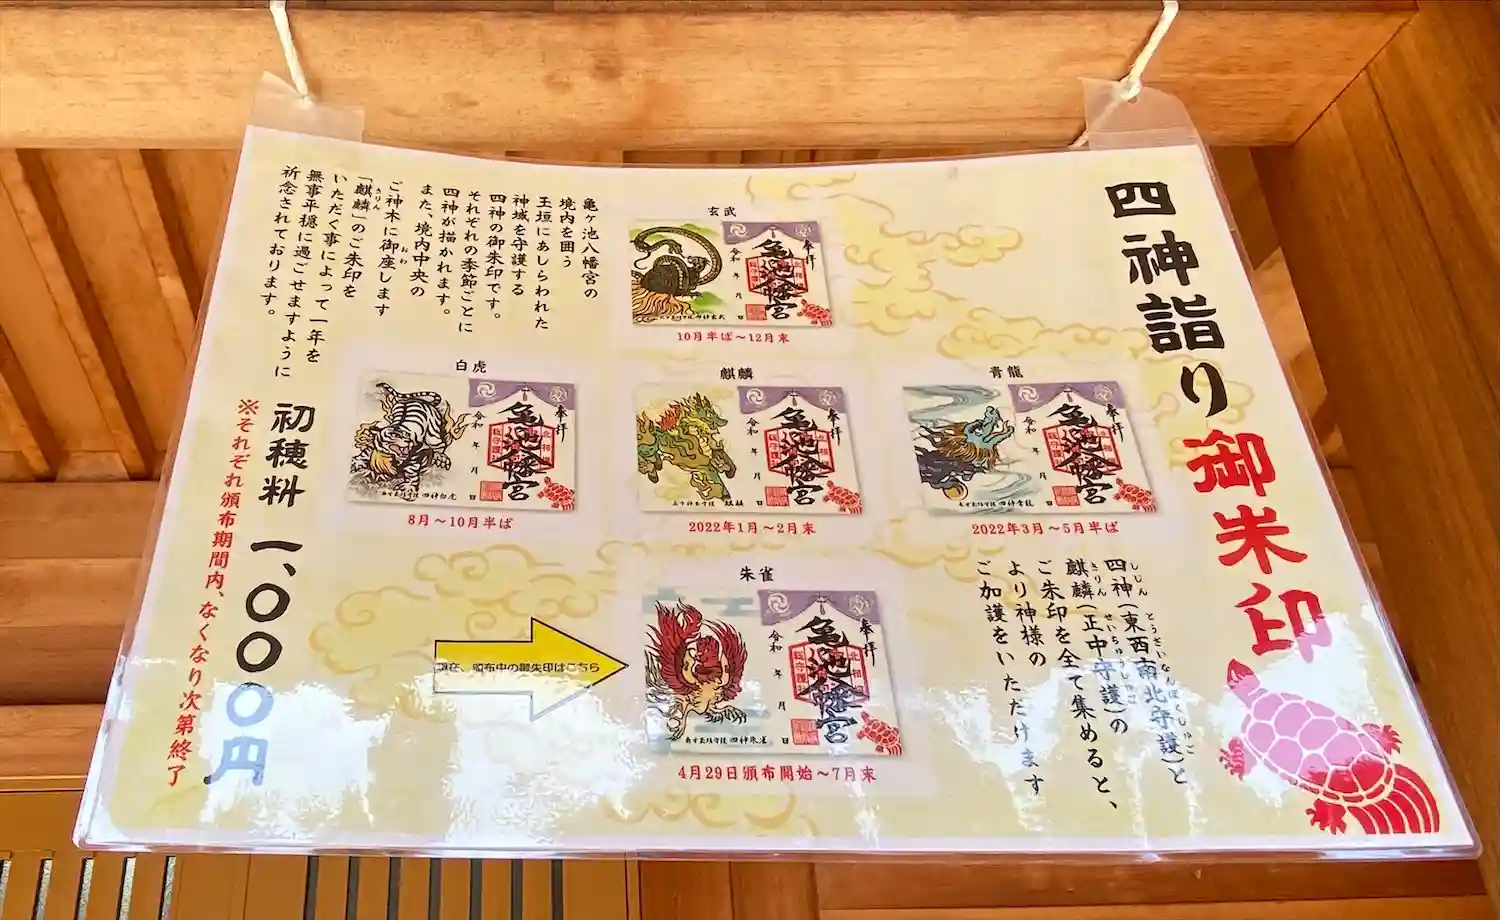 四神詣り御朱印
四神(東西南北守護)と
しじん とうざいなんぼくしゅご
麒麟(正中守護)の
きりん せいちゅうしゅご
ご朱印を全て集めると、
より神様の
ご加護をいただけます
玄武
奉拝
亀池八幡宮
令和 年 月 日
10月半ば〜12月末
青龍
奉拝
亀池八幡宮
令和 年 月 日
四神青龍
2022年3月〜5月半ば
麒麟
奉拝
亀池八幡宮
令和 年 月 日
麒麟
2022年1月〜2月末
白虎
奉拝
亀池八幡宮
令和 年 月 日
四神白虎
8月〜10月半ば
朱雀
奉拝
亀池八幡宮
令和 年 月 日
四神朱雀
4月29日頒布開始〜7月末
現在、頒布中の御朱印はこちら
亀ヶ池八幡宮の
境内を囲う
玉垣にあしらわれた
神域を守護する
四神の御朱印です。
それぞれの季節ごとに
四神が描かれます。
また、境内中央の
ご神木に御座します
おわ
「麒麟」のご朱印を
きりん
いただく事によって一年を
無事平穏に過ごせますように
祈念されております。
初穂料 一、〇〇〇円
※それぞれ頒布期間内、なくなり次第終了